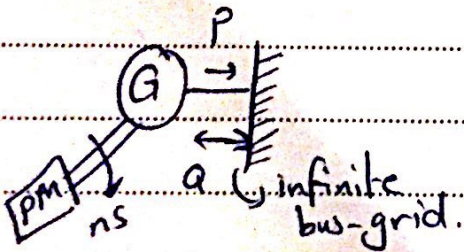 P
G
Q
infinite
bus-grid.
PM
ns